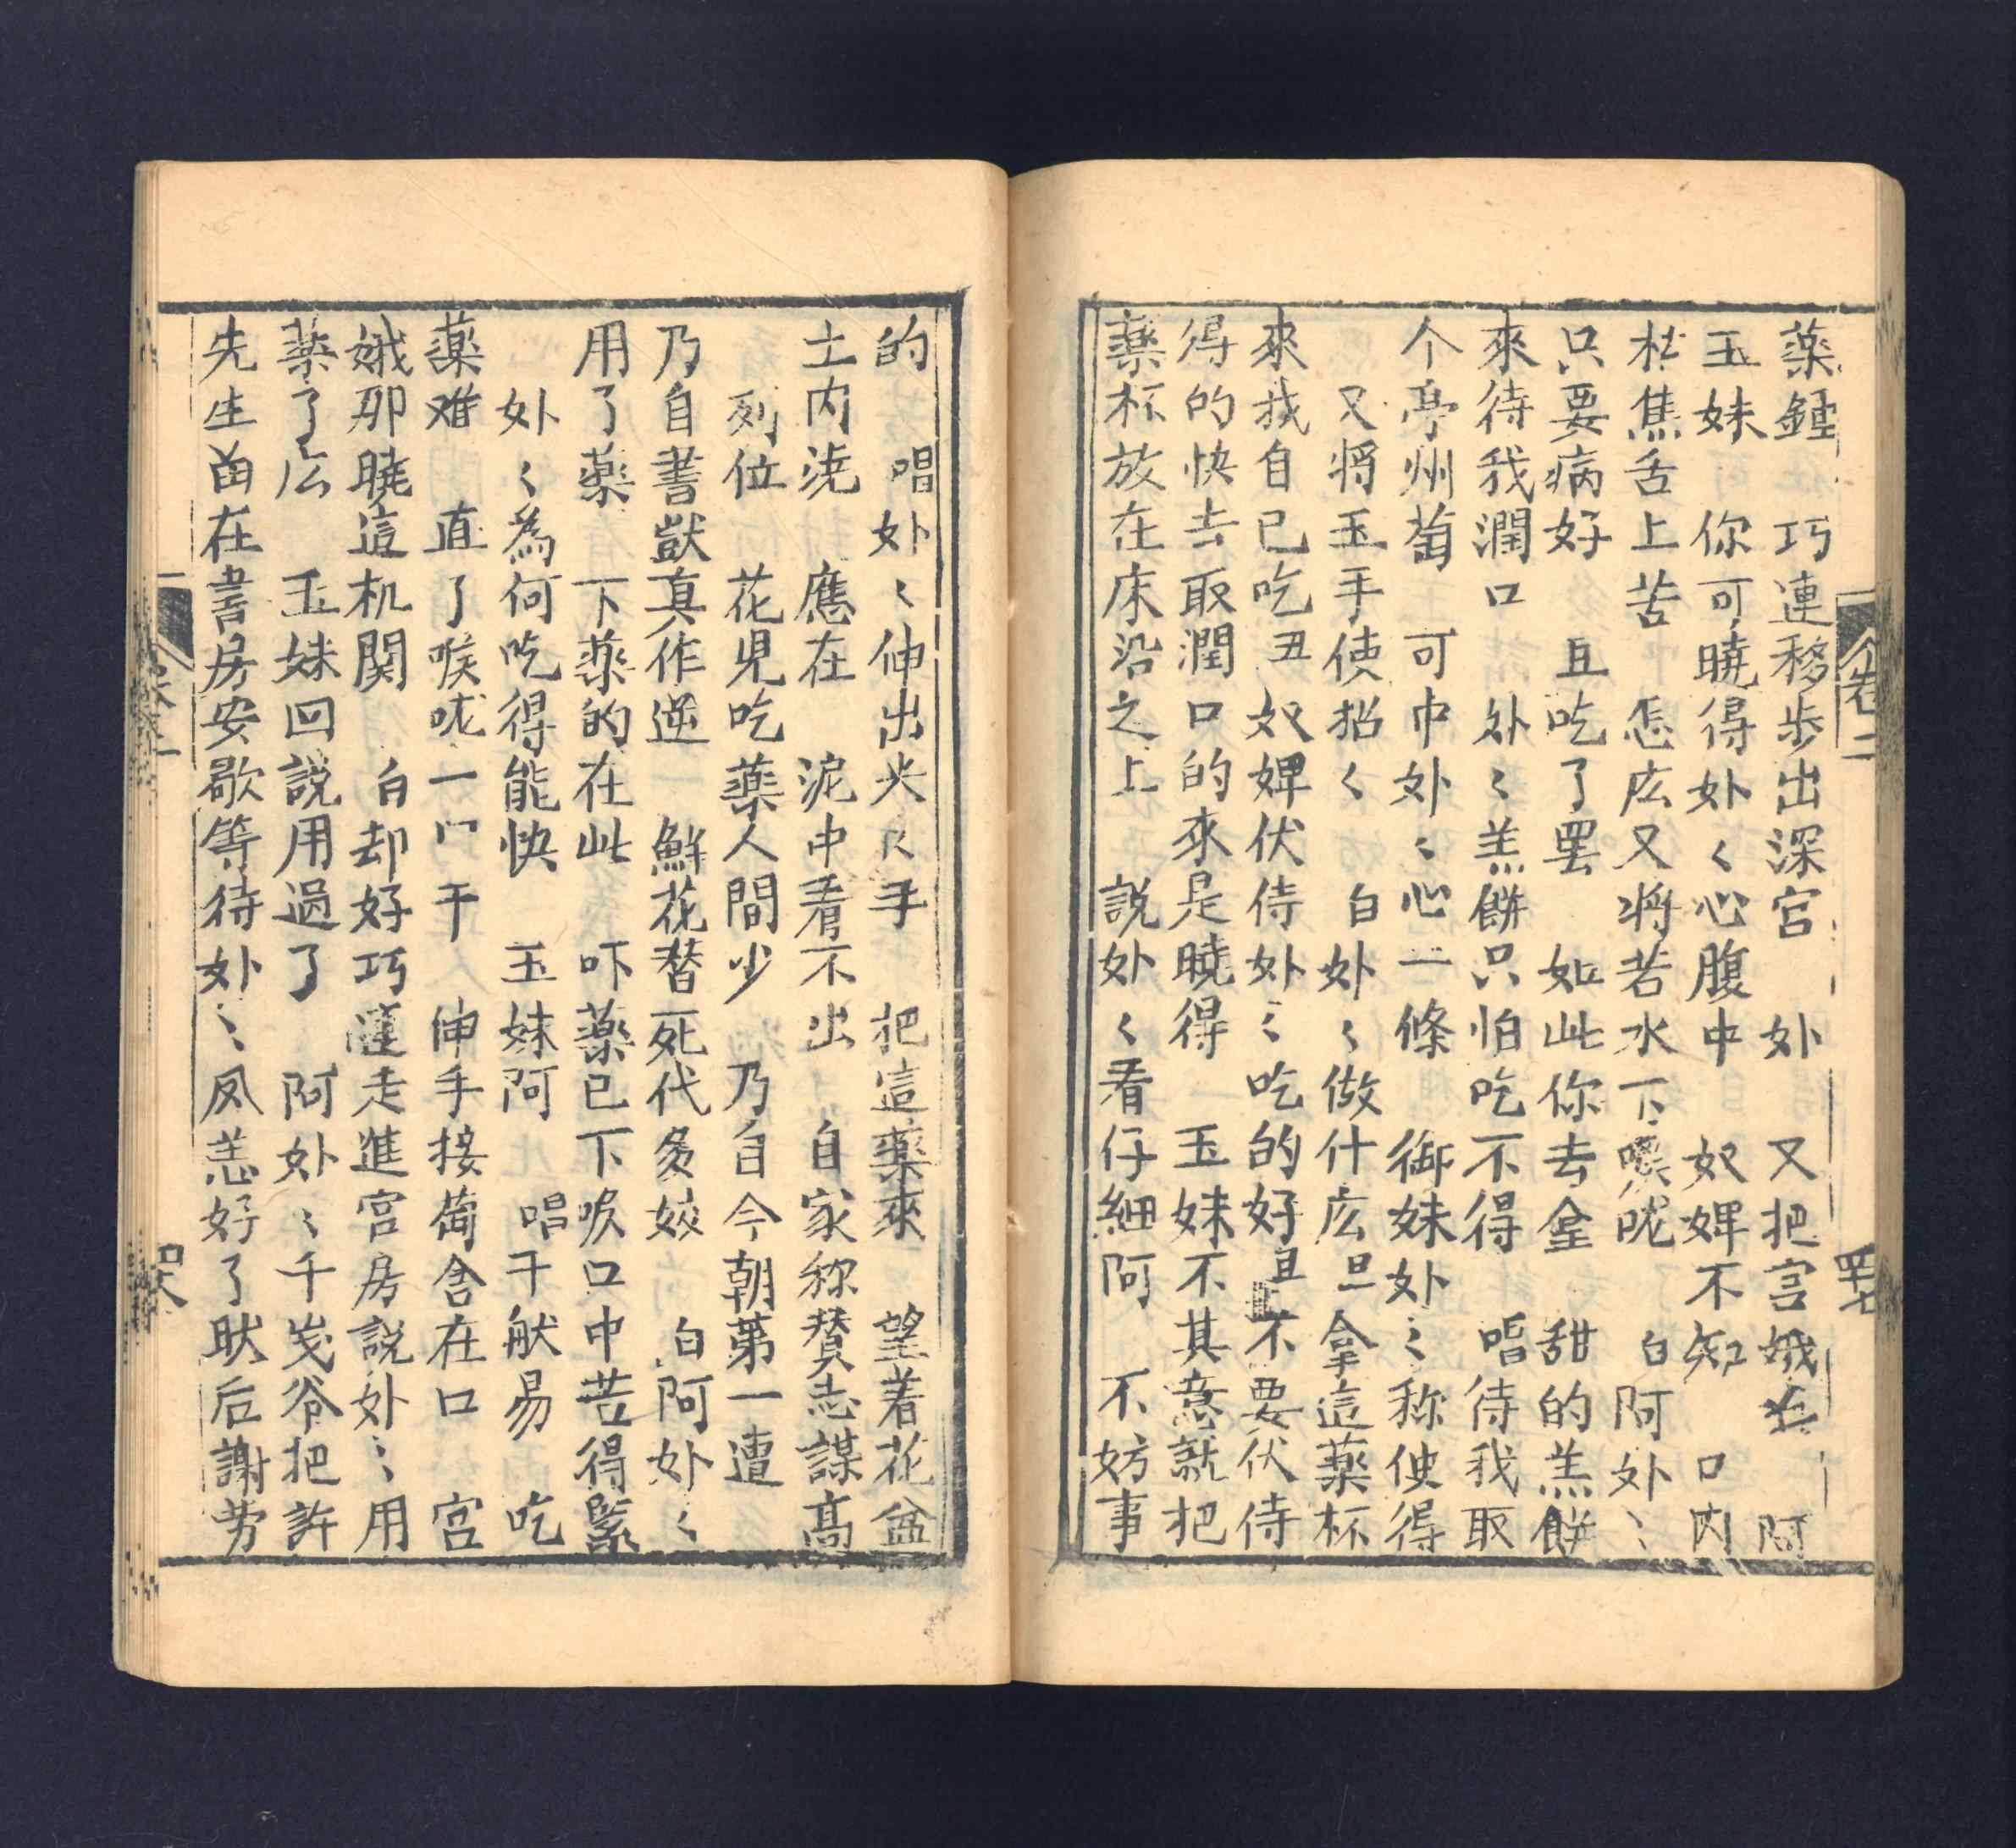 藥鍾　巧連移步出深宮　外　又把宮娥　阿
玉妹　你可曉得外〻心腹中　奴婢不知　口内
枯焦舌上苦　怎庅又将若水下喉咙　白阿外〻
只要病好　且吃了罢　如此你去拿　甜的羔餅
來待我潤口　外〻羔餅只怕吃不得　唱待我取
个亭州萄　可中外〻心一條　御妹外〻称使得
又将玉手使招〻　白外〻做什庅旦拿這藥杯
來我自已吃丑　奴婢伏侍外〻吃的好且不要伏侍
得的快去取潤口的來是曉得　玉妹不其意就把
藥杯放在床沿之上　説外〻看仔細阿　不妨事
卷二
罒七
的　唱外〻伸出尖〻手　把這藥來　望着花盆
土内浇　應在　泥中看不出　自家称賛志謀高
列位　花児吃藥人間少　乃自今朝第一遭
乃自書獃真作逆　鮮花替死代多姣　白阿外〻
用了藥　下藥的在此　吓藥已下喉口中苦得緊
外〻為何吃得能快　玉妹阿　唱干舩易　吃
藥难　直了喉咙一口干　伸手接萄含在口　宮
娥那曉這机関　白却好巧蓮走進宮房説外〻用
藥了庅　玉妹回説用過了　阿外〻千岁爷把許
先生留在書房安歇等待外〻凤恙好了肰后謝劳